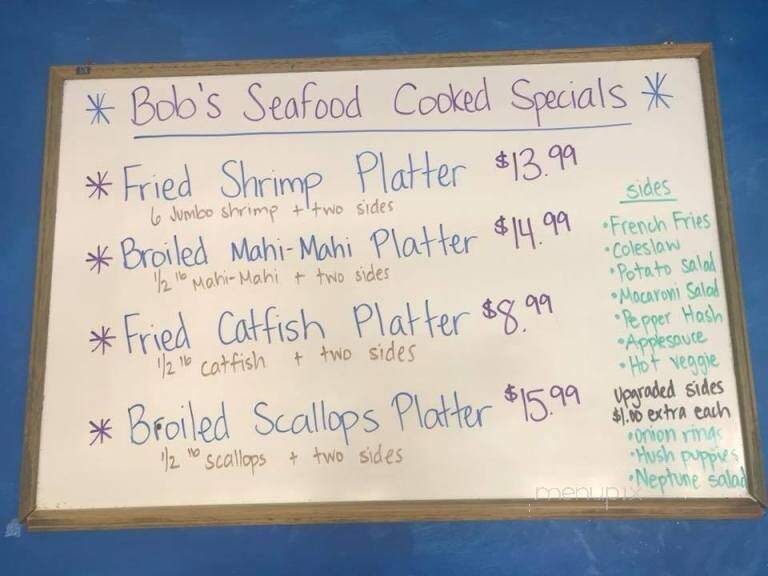 * Bob's Seafood Cooked Specials *
* Fried Shrimp Platter $13.99
6 Jumbo shrimp + two sides
* Broiled Mahi-Mahi Platter $14.99
1/2 lb Mahi-Mahi + two sides
* Fried Catfish Platter $8.99
1/2 lb catfish + two sides
* Broiled Scallops Platter $15.99
1/2 lb scallops + two sides
sides
• French Fries
• Coleslaw
• Potato Salad
• Macaroni Salad
• Pepper Hash
• Applesauce
• Hot veggie
Upgraded sides
$1.00 extra each
• Onion rings
• Hush puppies
• Neptune salad
menupix